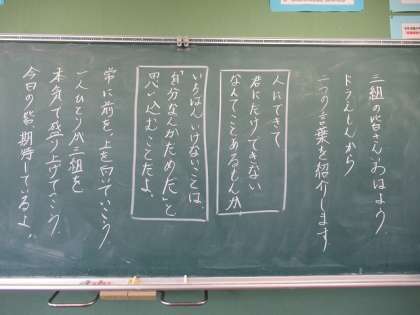 三組の皆さんおはよう。
ドラえもんから
二つの言葉を紹介します
人にできて
君にだけできない
なんてことあるもんか。
いちばんいけないことは、
「自分なんかだめだ」と
思い込むことだよ。
常に前を、上を向いていこう。
一人ひとりが三組を
本気で盛り上げていこう。
今日の皆に期待しているよ。